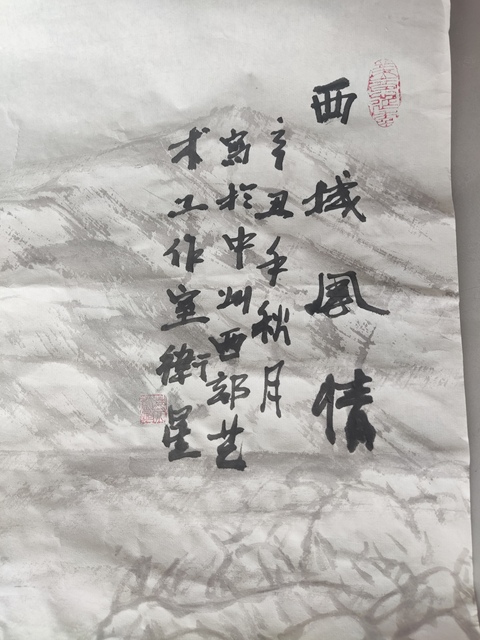 西域風情
辛丑年秋月
寫於中州西郊艺
术工作室衛星